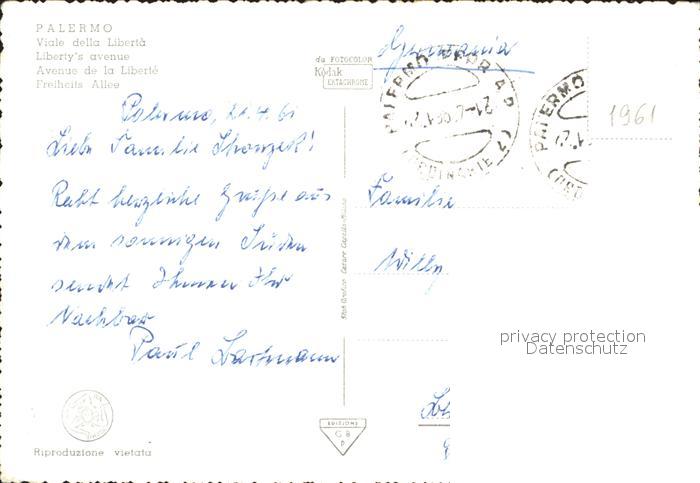 PALERMO
Viale della Libertà
Liberty's avenue
Avenue de la Liberté
Freiheits Allee
da FOTOCOLOR
Kodak
EKTACHROME
Germania
PALERMO
PALERMO
1961
Palermo, 21.4.61
Liebe Familie
Recht herzliche Grüße aus
dem sonnigen Süden
sendet Ihnen Ihr
Nachbar
Paul
Familie
Willy
privacy protection
Datenschutz
EDITIONS
Riproduzione vietata